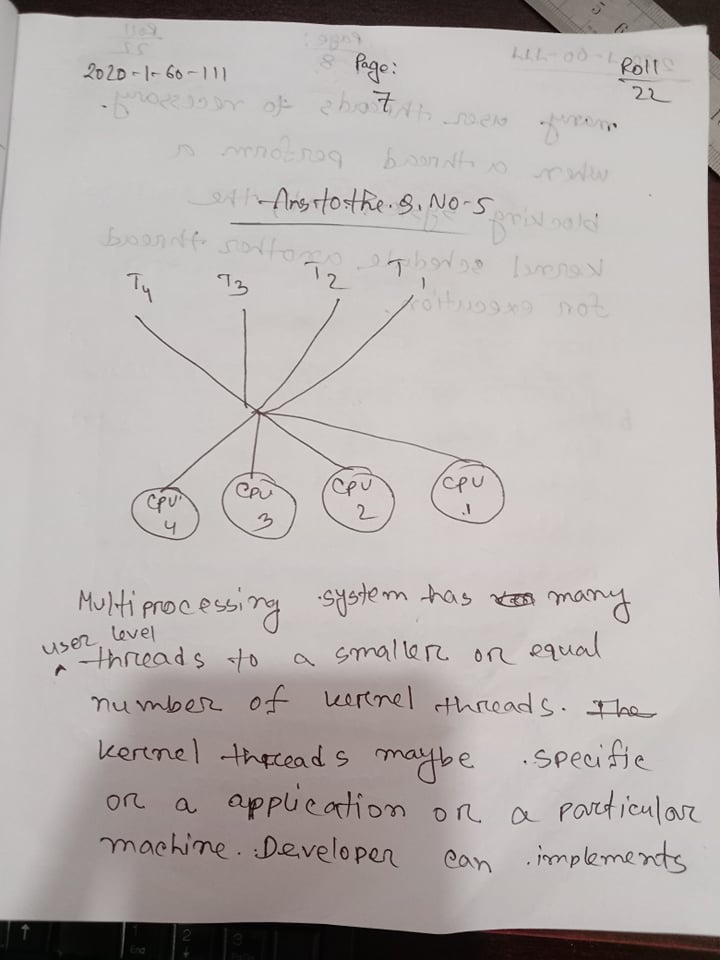 2020-1-60-111
Page:
7
Roll
22
Ans to the. Q. NO-5
T4 T3 T2 T1
CPU 4
CPU 3
CPU 2
CPU 1
Multiprocessing system has many
user level
threads to a smaller or equal
number of kernel threads. The
kernel threads maybe specific
or a application or a particular
machine. Developer can implements